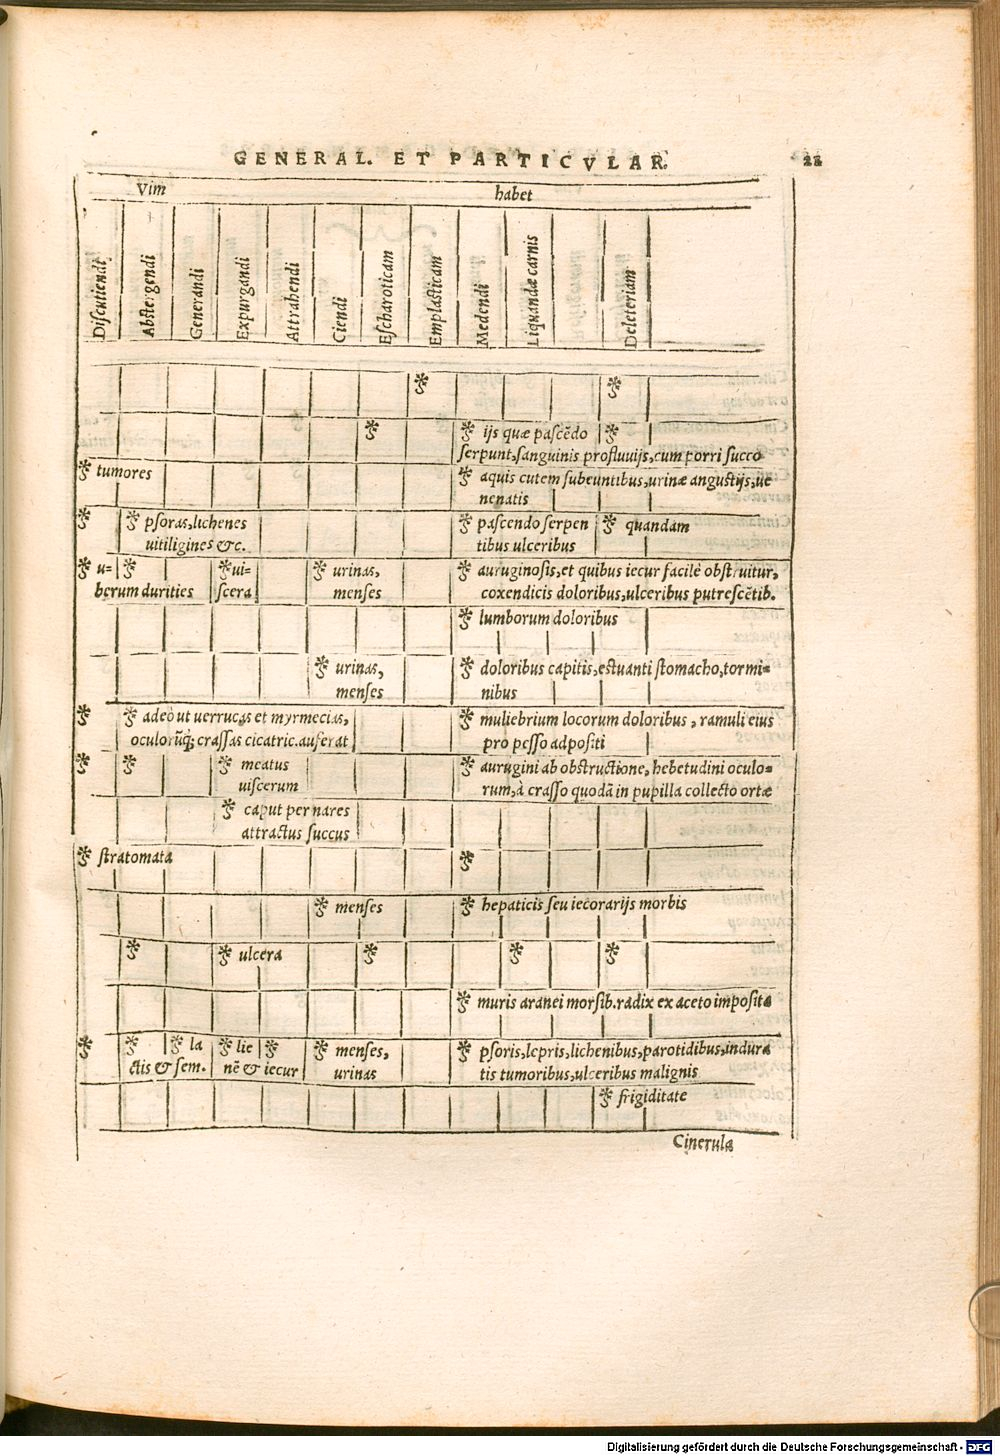 GENERAL. ET PARTICVLAR.
Vim habet
Discutiendi
Abstergendi
Generandi
Expurgandi
Attrahendi
Ciendi
Escharoticam
Emplasticam
Medendi
Liquandæ carnis
Deleteriam
* *
* * ijs quæ pascẽdo *
serpunt, sanguinis profluuijs, cum porri succo
* tumores * aquis cutem subeuntibus, urinæ angustijs, ue
nenatis
* * psoras, lichenes * pascendo serpen * quandam
uitiligines &c. tibus ulceribus
* u= * * ui= * urinas, * auruginosis, et quibus iecur facilè obstruitur,
berum durities scera menses coxendicis doloribus, ulceribus putrescẽtib.
* lumborum doloribus
* urinas, * doloribus capitis, estuanti stomacho, tormi=
menses nibus
* * adeò ut uerrucas et myrmecias, * muliebrium locorum doloribus, ramuli eius
oculorũq; crassas cicatric. auferat pro pesso adpositi
* * * meatus * aurugini ab obstructione, hebetudini oculo=
uiscerum rum, à crasso quodã in pupilla collecto ortæ
* caput per nares
attractus succus
* stratomata *
* menses * hepaticis seu iecorarijs morbis
* * ulcera * * *
* muris aranei morsib. radix ex aceto imposita
* * * la * lie * * menses, * psoris, lepris, lichenibus, parotidibus, indura
ctis & sem. nẽ & iecur urinas tis tumoribus, ulceribus malignis
* frigiditate
Cinerula
Digitalisierung gefördert durch die Deutsche Forschungsgemeinschaft - DFG